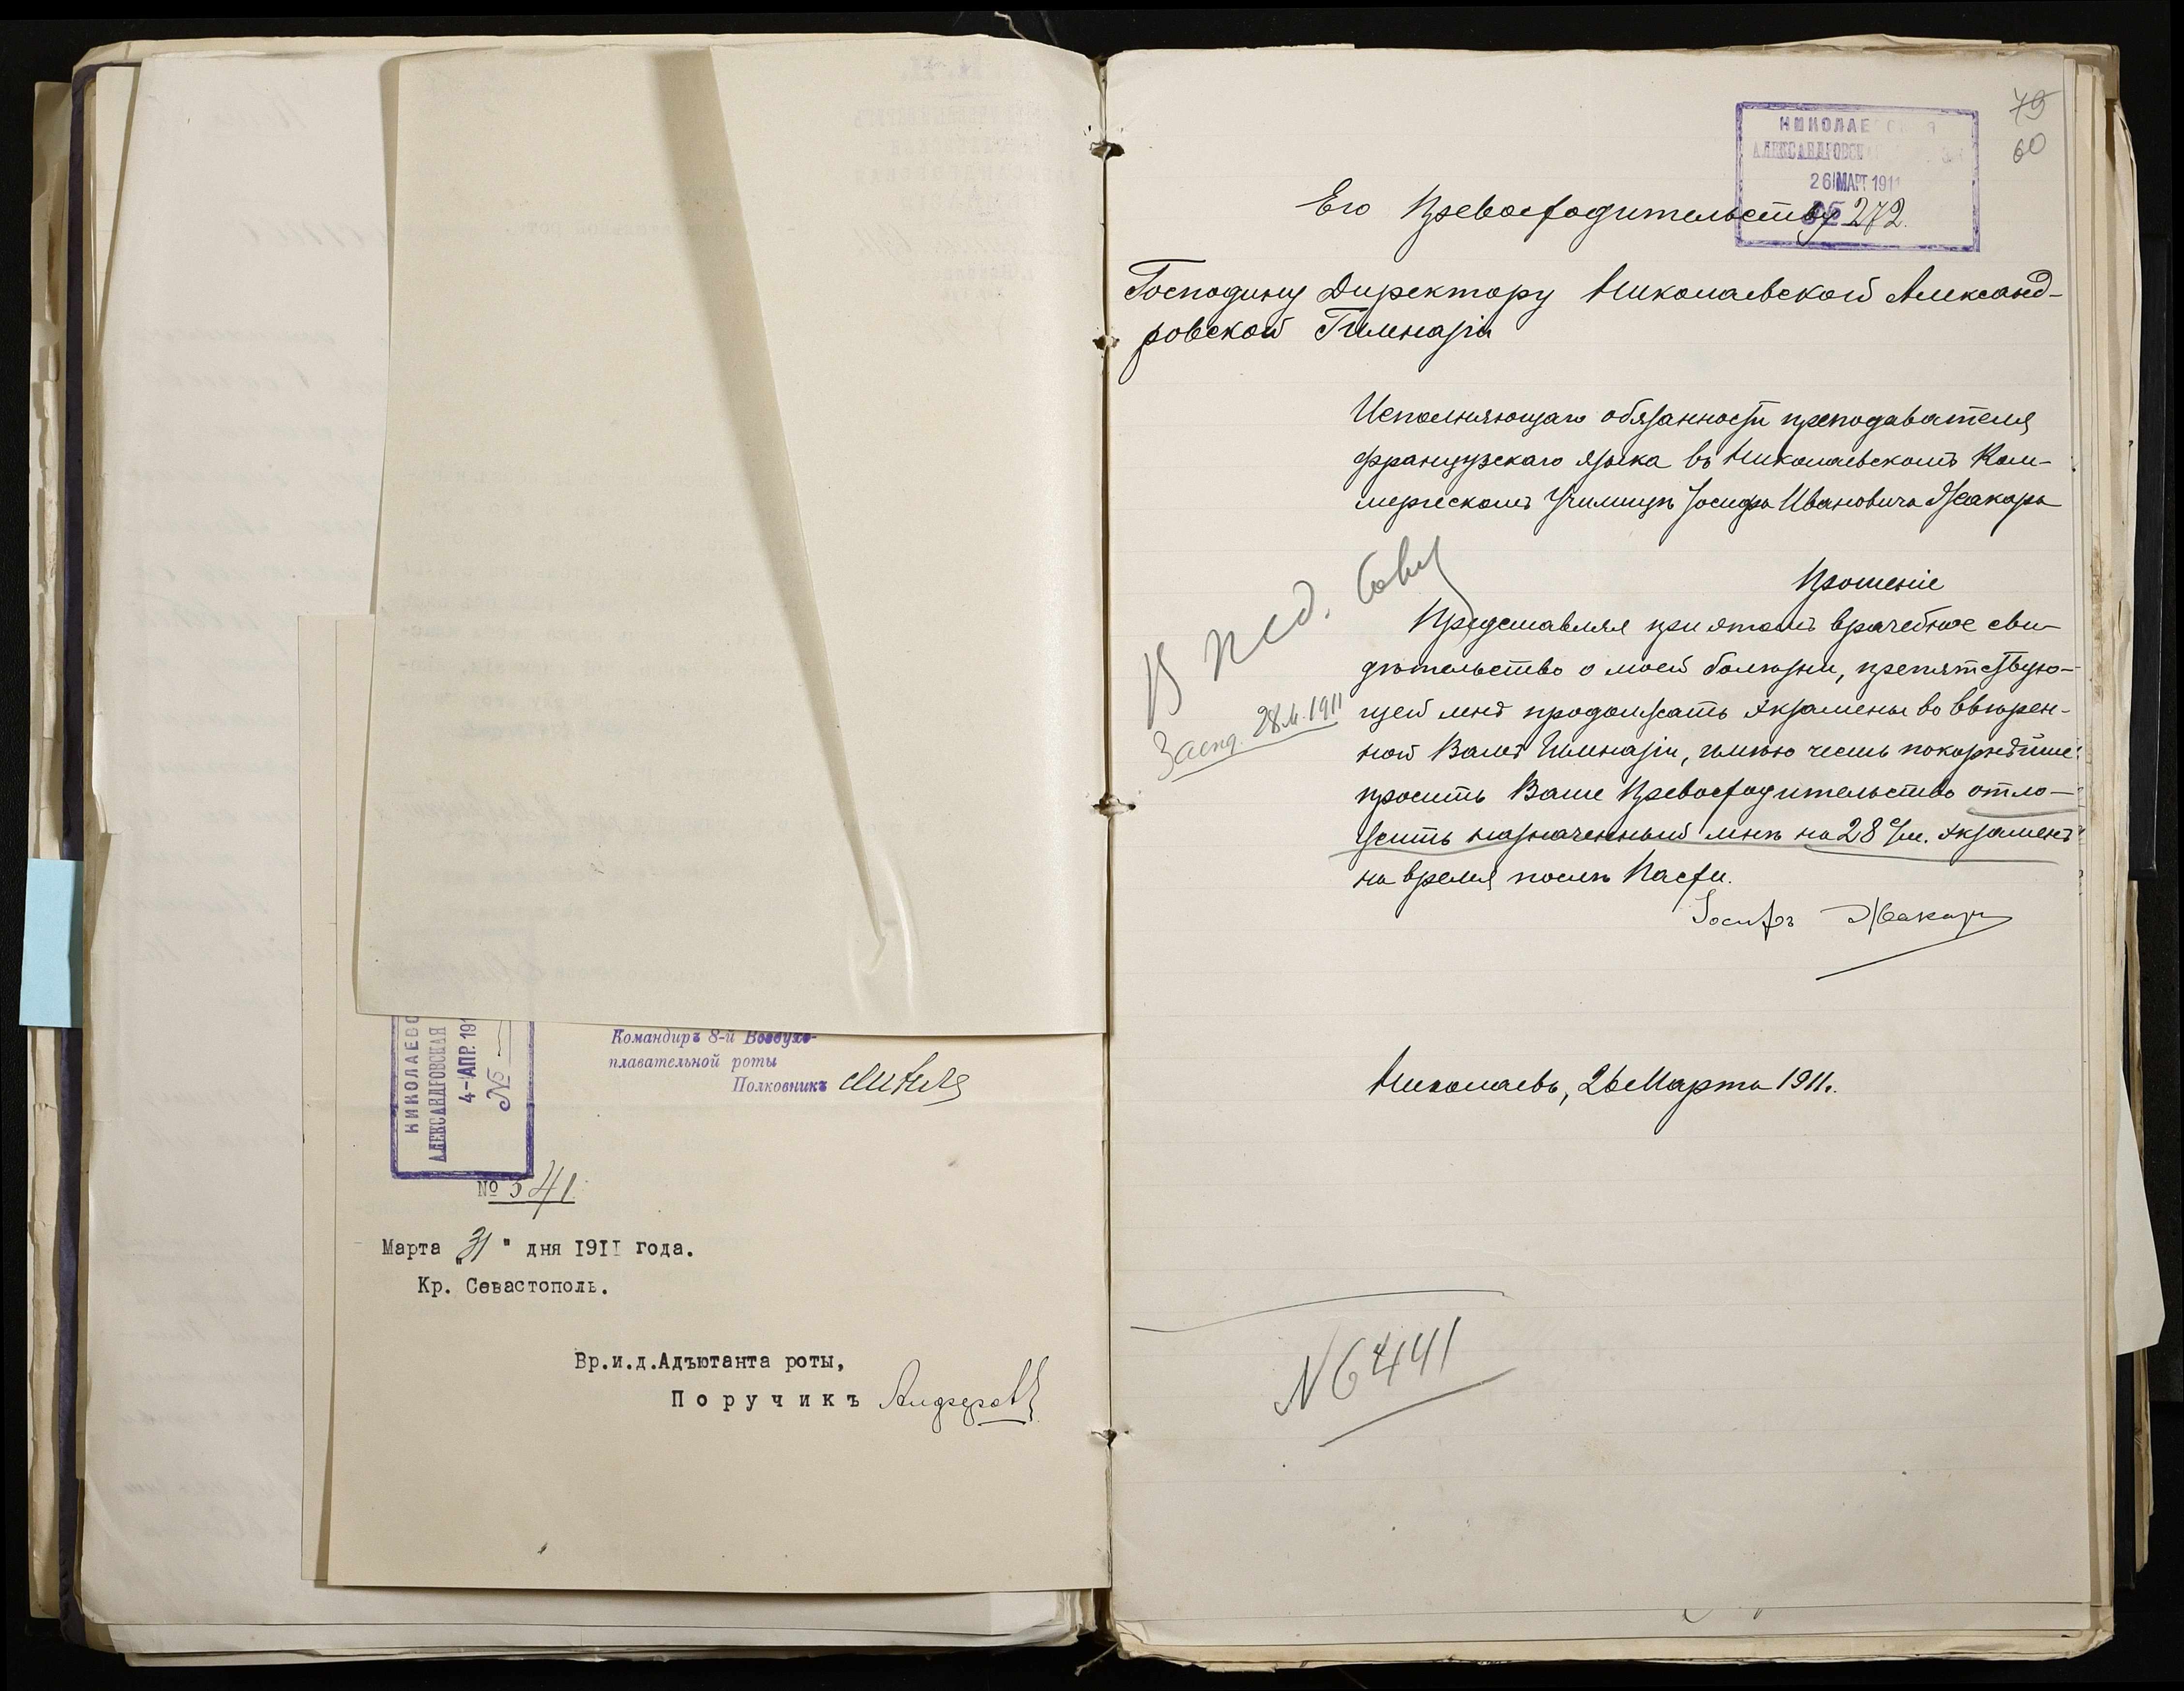 НИКОЛАЕВС
АЛЕКСАНДРОВСКАЯ
4-АПР. 191
№
Командиръ 8-й Воздухо-
плавательной роты
Полковникъ
№ 541
Марта „31" дня 1911 года.
Кр. Севастополь.
Вр.и.д.Адъютанта роты,
Поручикъ Алферовъ
79
60
НИКОЛАЕВСКАЯ
АЛЕКСАНДРОВСК
26 МАРТ 1911
№ 272.
Его Превосходительству
Господину Директору Николаевской Александ-
ровской Гимназіи
Исполняющаго обязанности преподавателя
французскаго языка въ Николаевскомъ Ком-
мерческомъ Училищѣ Іосифа Ивановича Жакара
Прошеніе
Представляя при этомъ врачебное сви-
дѣтельство о моей болѣзни, препятствую-
щей мнѣ продолжать экзамены во ввѣрен-
ной Вамъ Гимназіи, имѣю честь покорнѣйше
просить Ваше Превосходительство отло-
жить назначенный мнѣ на 28 с/м. экзаменъ
на время послѣ Пасхи.
Іосифъ Жакаръ
В пед. Совѣ
Засѣд. 28.М.1911
Николаевъ, 26 Марта 1911.
N 6441